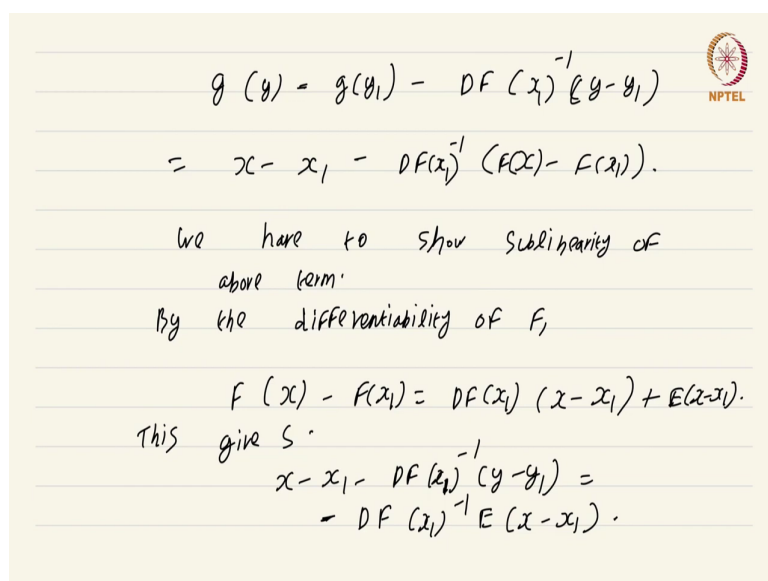 g (y) - g(y₁) - DF (x₁)⁻¹ (y-y₁)
NPTEL
= x - x₁ - DF(x₁)⁻¹ (F(x) - F(x₁)).
We have to show sublinearity of
above term.
By the differentiability of F,
F (x) - F(x₁) = DF(x₁) (x - x₁) + E(x-x₁).
This gives.
x - x₁ - DF (x₁)⁻¹ (y - y₁) =
- DF (x₁)⁻¹ E (x - x₁).